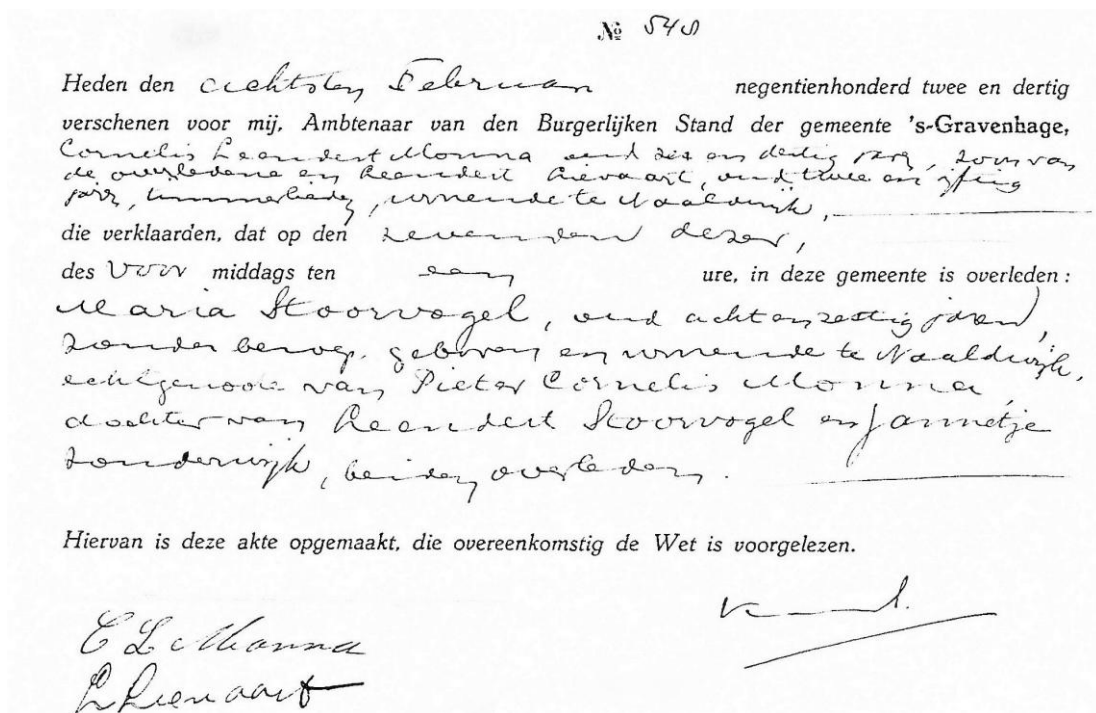 № 548
Heden den achtsten Februari negentienhonderd twee en dertig
verschenen voor mij, Ambtenaar van den Burgerlijken Stand der gemeente 's-Gravenhage,
Cornelis Leendert Monna oud zes en dertig jaren, zoon van
de overledene en Leendert Lievaart, oud twee en vijftig
jaren, timmerlieden, wonende te Naaldwijk,
die verklaarden, dat op den zevenden dezer,
des voor middags ten een ure, in deze gemeente is overleden:
Maria Stoorvogel, oud achtenzestig jaren,
zonder beroep, geboren en wonende te Naaldwijk,
echtgenoote van Pieter Cornelis Monna,
dochter van Leendert Stoorvogel en Jannetje
Zonderwijk, beiden overleden.
Hiervan is deze akte opgemaakt, die overeenkomstig de Wet is voorgelezen.
C L Monna
L Lievaart